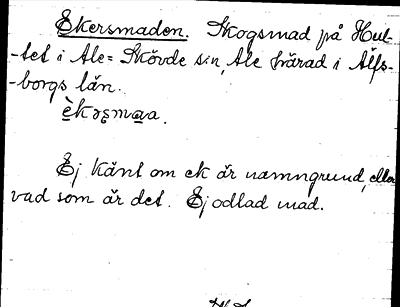 Ekersmaden. Skogsmad på Hul-
-tet i Ale-Skövde s:n, Ale härad i Älfs-
-borgs län.
èkəʂmaa.
Ej känt om ek är namngrund, eller
vad som är det. Ej odlad mad.